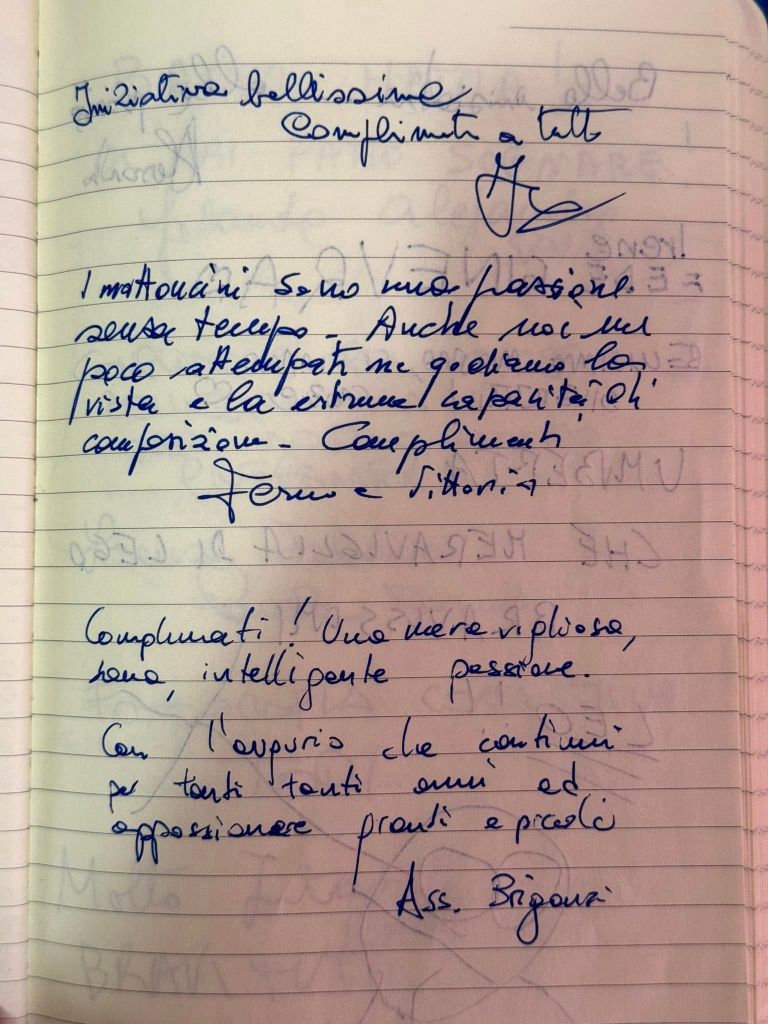 Iniziativa bellissima
Complimenti a tutti
I mattoncini sono una passione
senza tempo - Anche noi un
poco attempati ne godiamo la
vista e la estrema capacità di
composizione - Complimenti
Fermo e Vittoria
Complimenti! Una meravigliosa,
sana, intelligente passione.
Con l'augurio che continui
per tanti tanti anni ed
appassionare grandi e piccoli
Ass. Briganzi